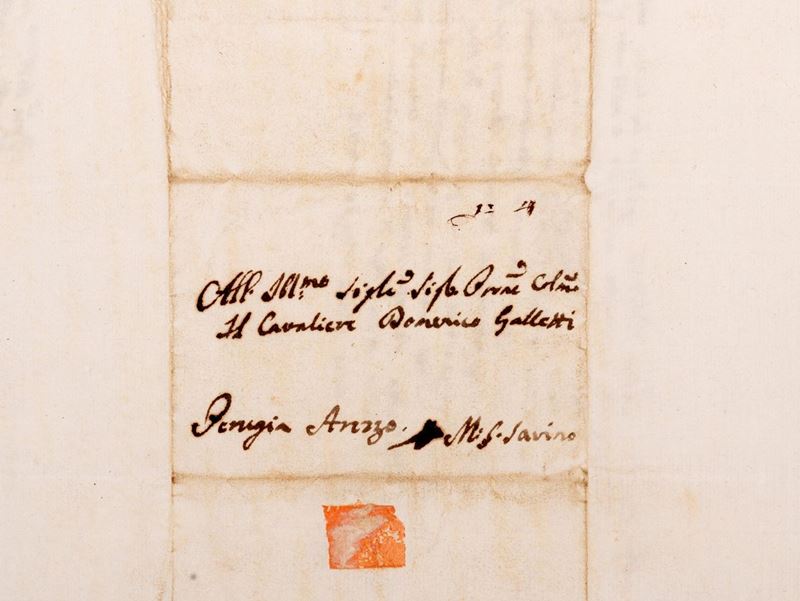 All' Ill.mo Sig.re Sig.r Prone Colmo
Il Cavaliere Domenico Galletti
Perugia Arezzo. M: S. Savino